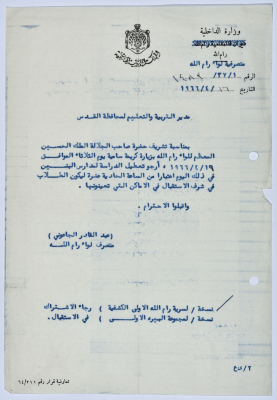 وزارة الداخلية
رام الله
متصرفية لواء رام الله
الرقم ٣٢/١٠/
التاريخ ١٩٦٦/٤/١٦
مدير التربية والتعليم لمحافظة القدس
بمناسبة تشريف حضرة صاحب الجلالة الملك الحسين
المعظم للواء رام الله بزيارة كريمة صباحية يوم الثلاثاء الموافق
١٩٦٦/٤/١٩ ، أرجو تعطيل الدراسة لمدارس البنين
في ذلك اليوم اعتبارا من الساعة الحادية عشرة ليكون الطلاب
في شرف الاستقبال في الاماكن التي تعينونها .
واقبلوا الاحترام ،
(عبد القادر الجاعوني)
متصرف لواء رام الله
نسخة / لسرية رام الله الاولى الكشفية ) رجاء الاشتراك
نسخة / لمجموعة البيره الاولى ) في الاستقبال .